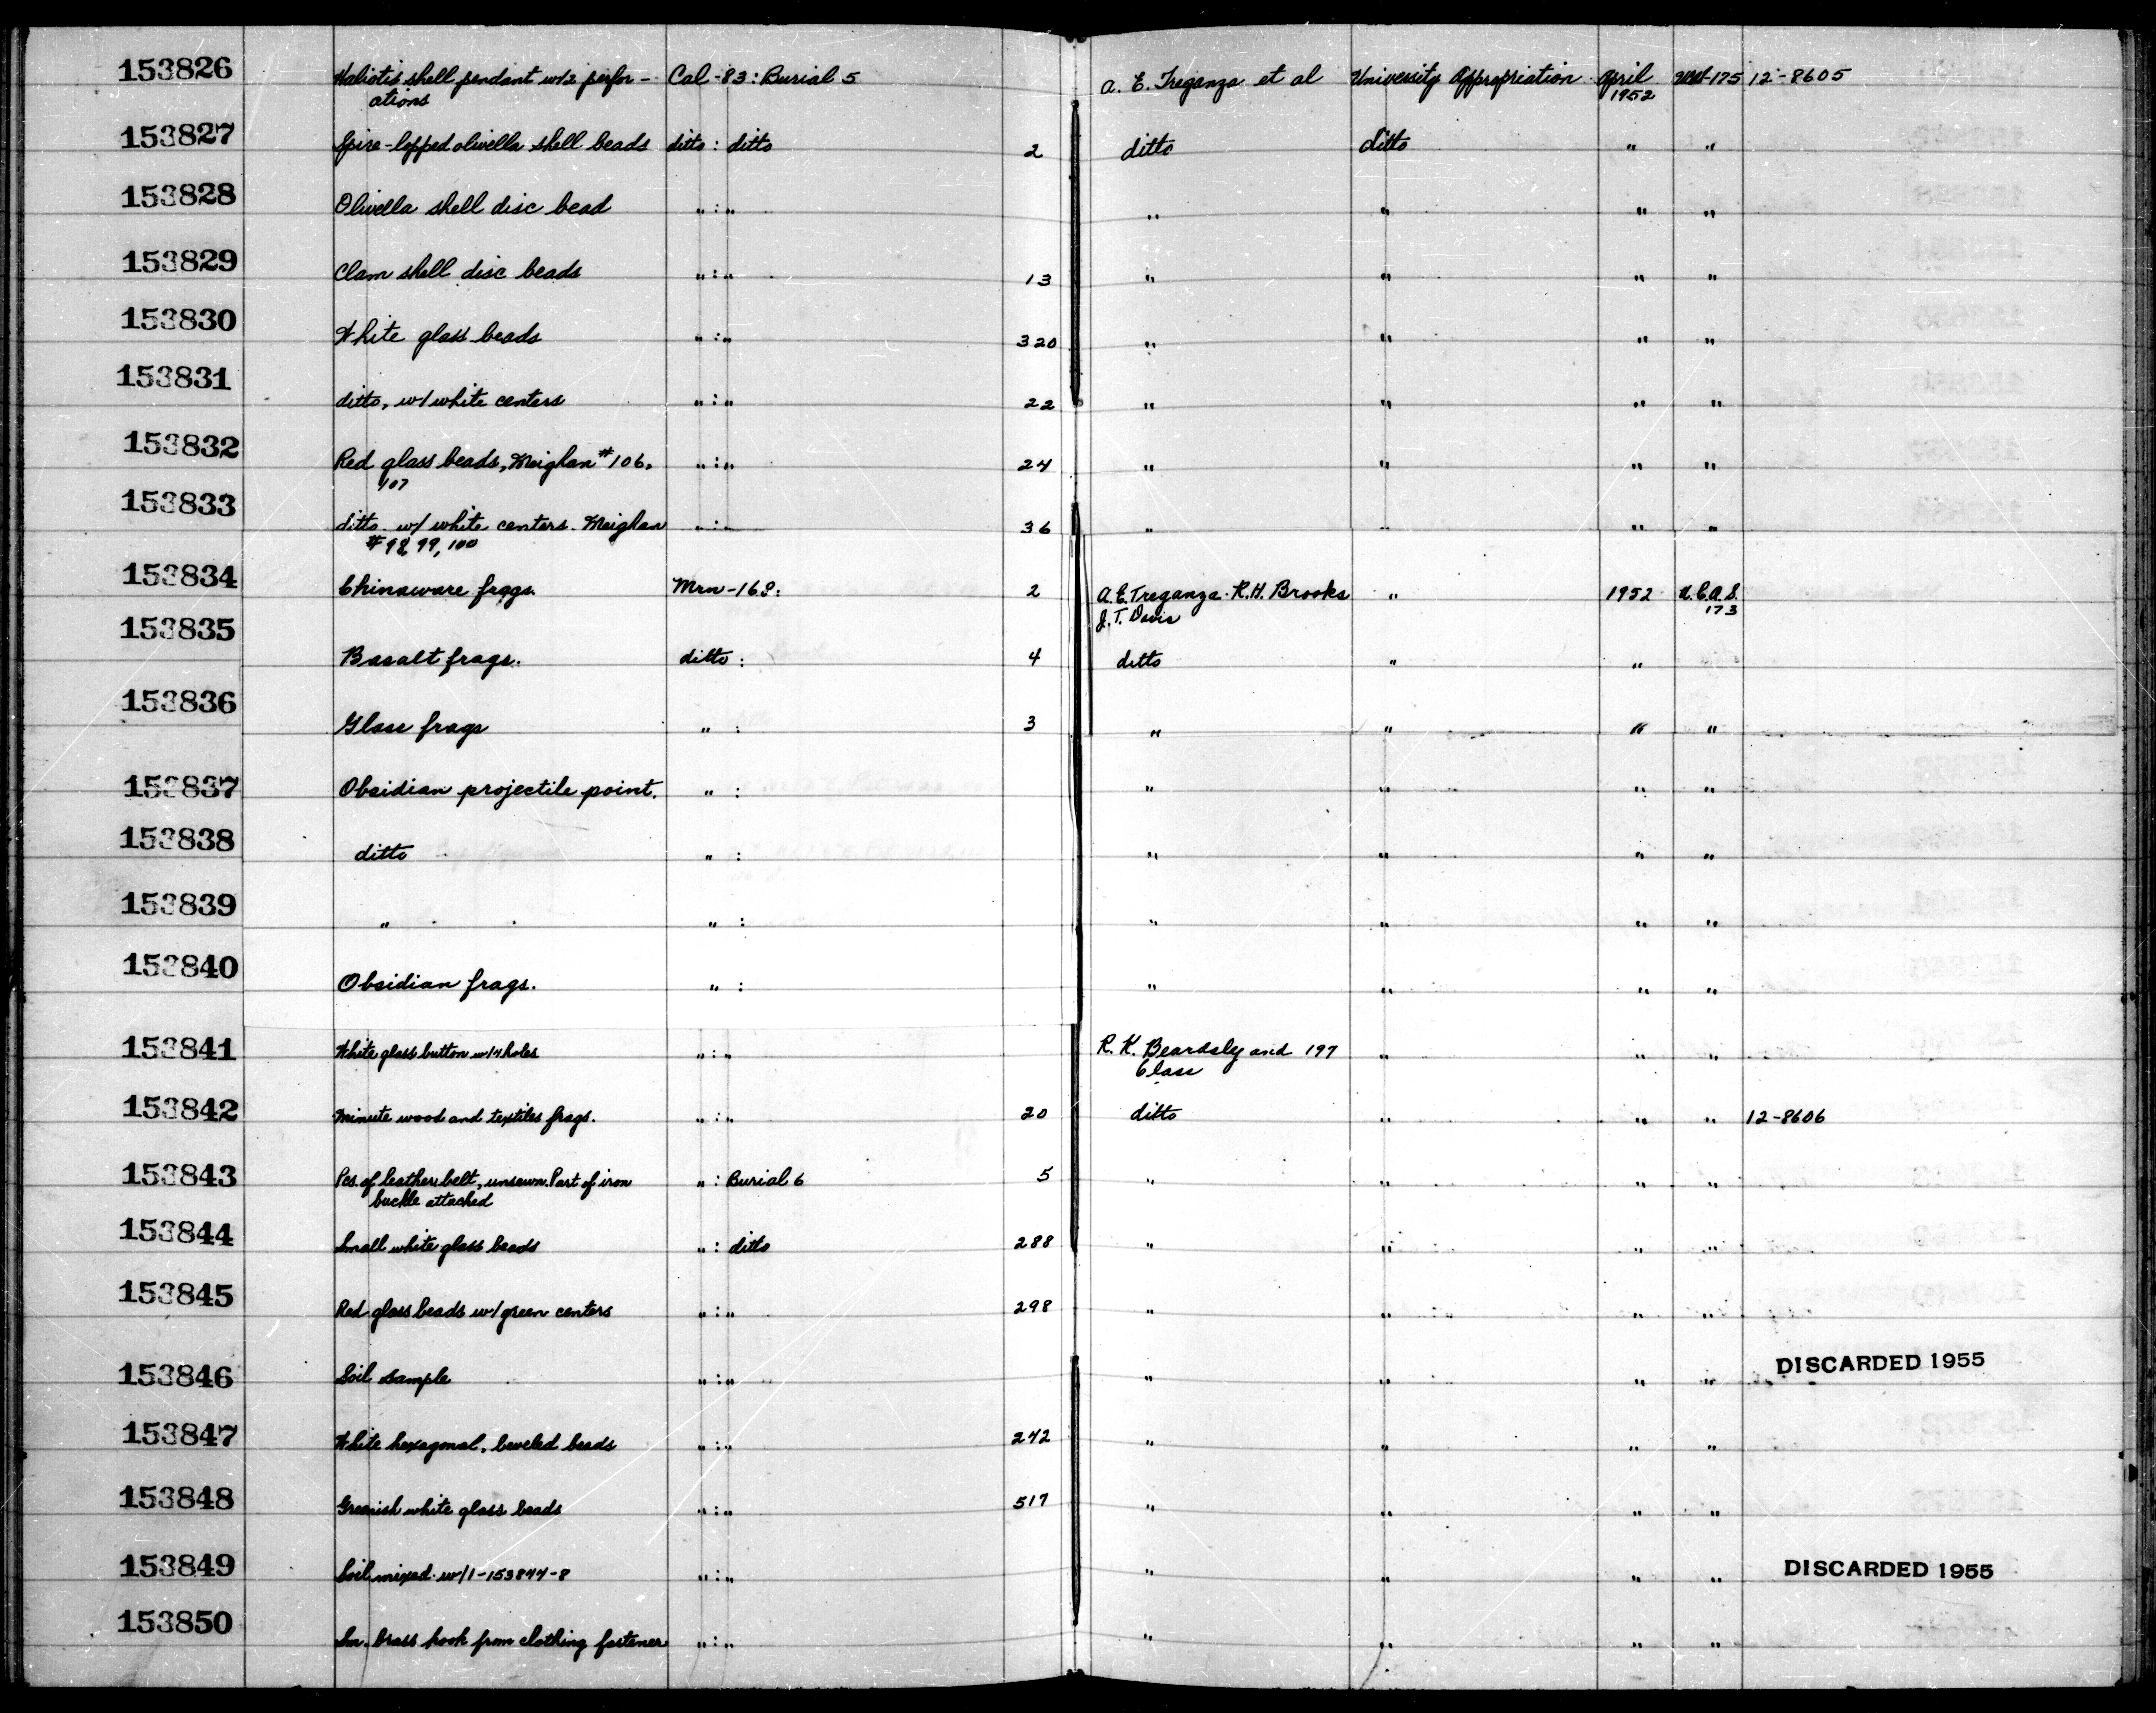 153826 Haliotis shell pendant w/2 perfor- Cal-83: Burial 5 A. E. Treganza et al University Appropriation April 175 12-8605
ations 1952
153827 Spire-lopped olivella shell beads ditto: ditto 2 ditto ditto " "
153828 Olivella shell disc bead " : " " " " "
153829 Clam shell disc beads " : " 13 " " " "
153830 White glass beads " : " 320 " " " "
153831 ditto, w/ white centers " : " 22 " " " "
153832 Red glass beads, Meighan #106, " : " 24 " " " "
107
153833 ditto w/ white centers. Meighan " : " 36 " " " "
#98, 99, 100
153834 Chinaware frags. Mrn-168: 2 A.E. Treganza - R.H. Brooks " 1952 U.C.A.S.
J. T. Davis 173
153835 Basalt frags. ditto : 4 ditto " "
153836 Glass frags " : 3 " " " "
153837 Obsidian projectile point. " : " " " "
153838 ditto " : " " " "
153839 " " : " " " "
153840 Obsidian frags. " : " " " "
153841 White glass button w/4 holes " : " R. K. Beardsly and 197 " " "
Class
153842 Minute wood and textiles frags. " : " 20 ditto " " " 12-8606
153843 Pcs. of leather belt, unsewn. Part of iron " : Burial 6 5 " " " "
buckle attached
153844 Small white glass beads " : ditto 288 " " " "
153845 Red glass beads w/ green centers " : " 298 " " " "
153846 Soil sample " : " " " " " DISCARDED 1955
153847 White hexagonal, beveled beads " : " 242 " " " "
153848 Greenish white glass beads " : " 517 " " " "
153849 Soil mixed w/ 1-153844-8 " : " " " " " DISCARDED 1955
153850 Sm. brass hook from clothing fastener " : " " " " "